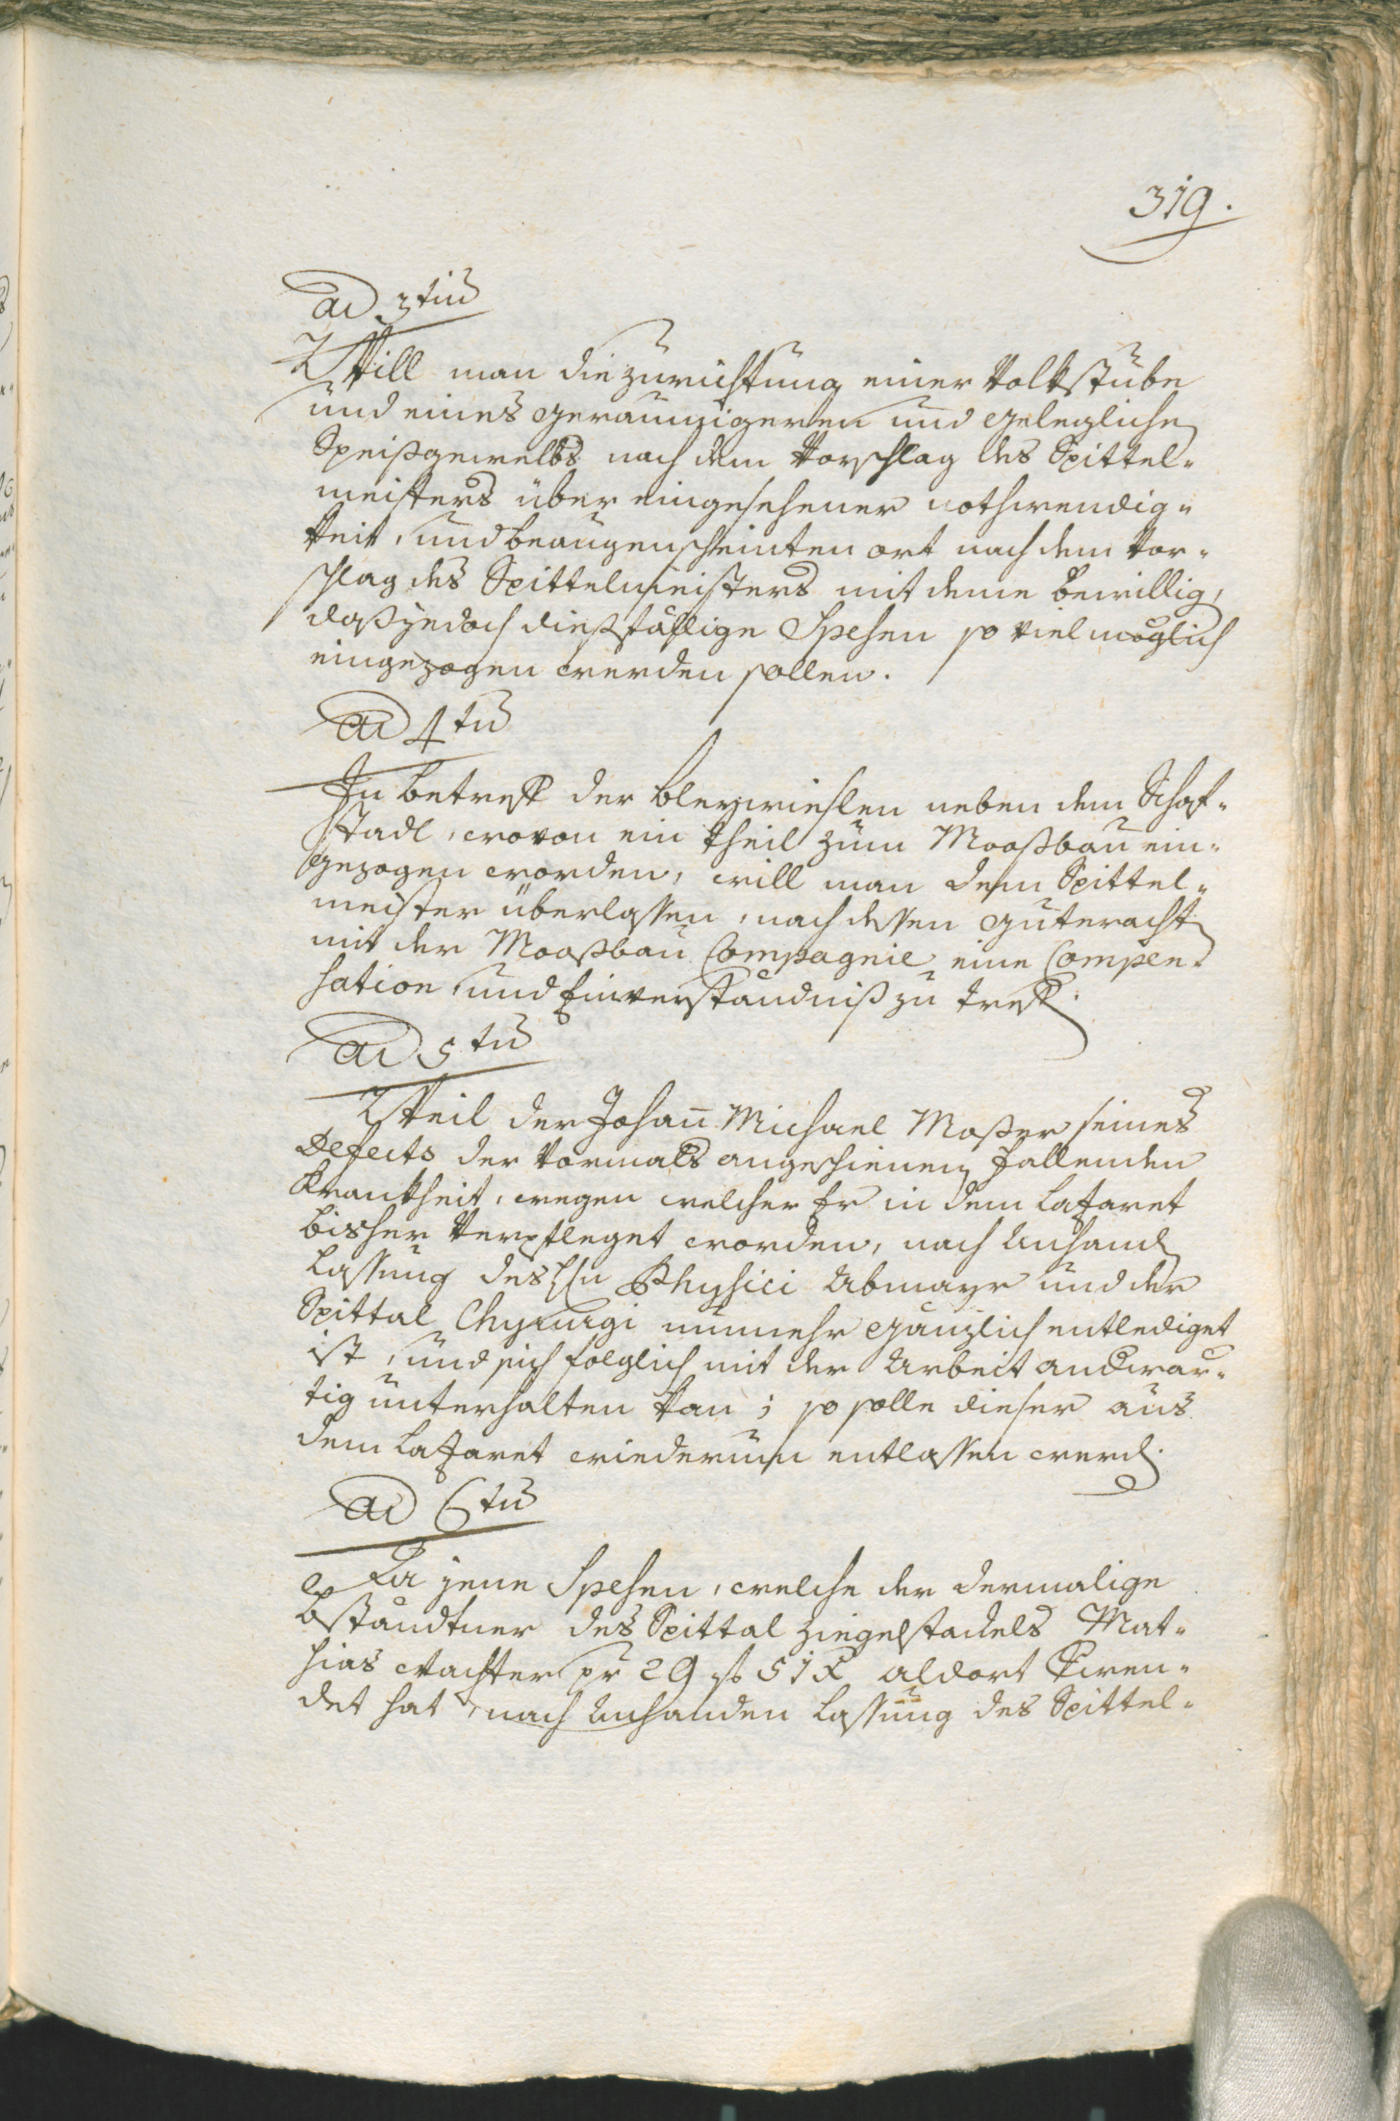 319.
ad 3tiu
Will man die zurichtung einer Volkstube
und eines geraumigeren und gelegliche
Speißgewelbs nach dem Vorschlag des Spittel-
meisters über eingesehener nothwendig-
keit, und beaugenscheinten ort nach dem Vor-
schlag des Spittelmeisters mit deme bewillig,
daß jedoch dießfällige Spesen so viel möglich
eingezogen werden sollen.
ad 4tu
In betreff der bley wieslen neben dem Schaf-
stadl, wovon ein theil zum Mooßbau ein-
gezogen worden, will man dem Spittel-
meister überlassen, nach dessen guteracht
mit der Mooßbau Compagnie eine Compen-
sation und Einverständniß zu treff.
ad 5tu
Weil der Johan̄ Michael Moßer seines
Defects der vormals angeschienen fallenden
Krankheit, wegen welcher Er in dem Lazaret
bisher verpfleget worden, nach Anhand
lassung des Hn Physici Abmayr und der
Spittal Chyrurgi nunmehr gänzlich entlediget
ist, und sich folglich mit der Arbeit anderwär-
tig unterhalten kan; so solle dieser aus
dem Lazaret wiederum entlassen werd.
ad 6tu
Da jene Spesen, welche der dermalige
bständtner des Spittal Ziegelstadels Mat-
hias Wachter pr 29 f 51 x aldort
det hat, nach Anhanden lassung des Spittel-